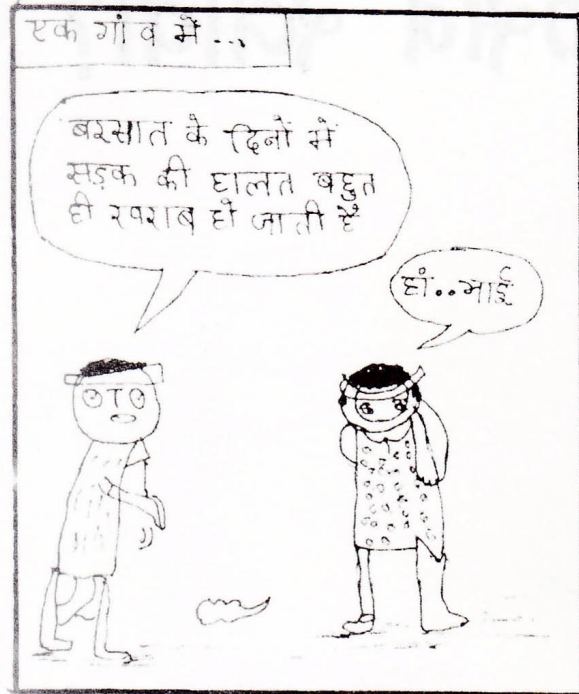 एक गांव में...
बरसात के दिनों में
सड़क की हालत बहुत
ही खराब हो जाती है
हां..भाई